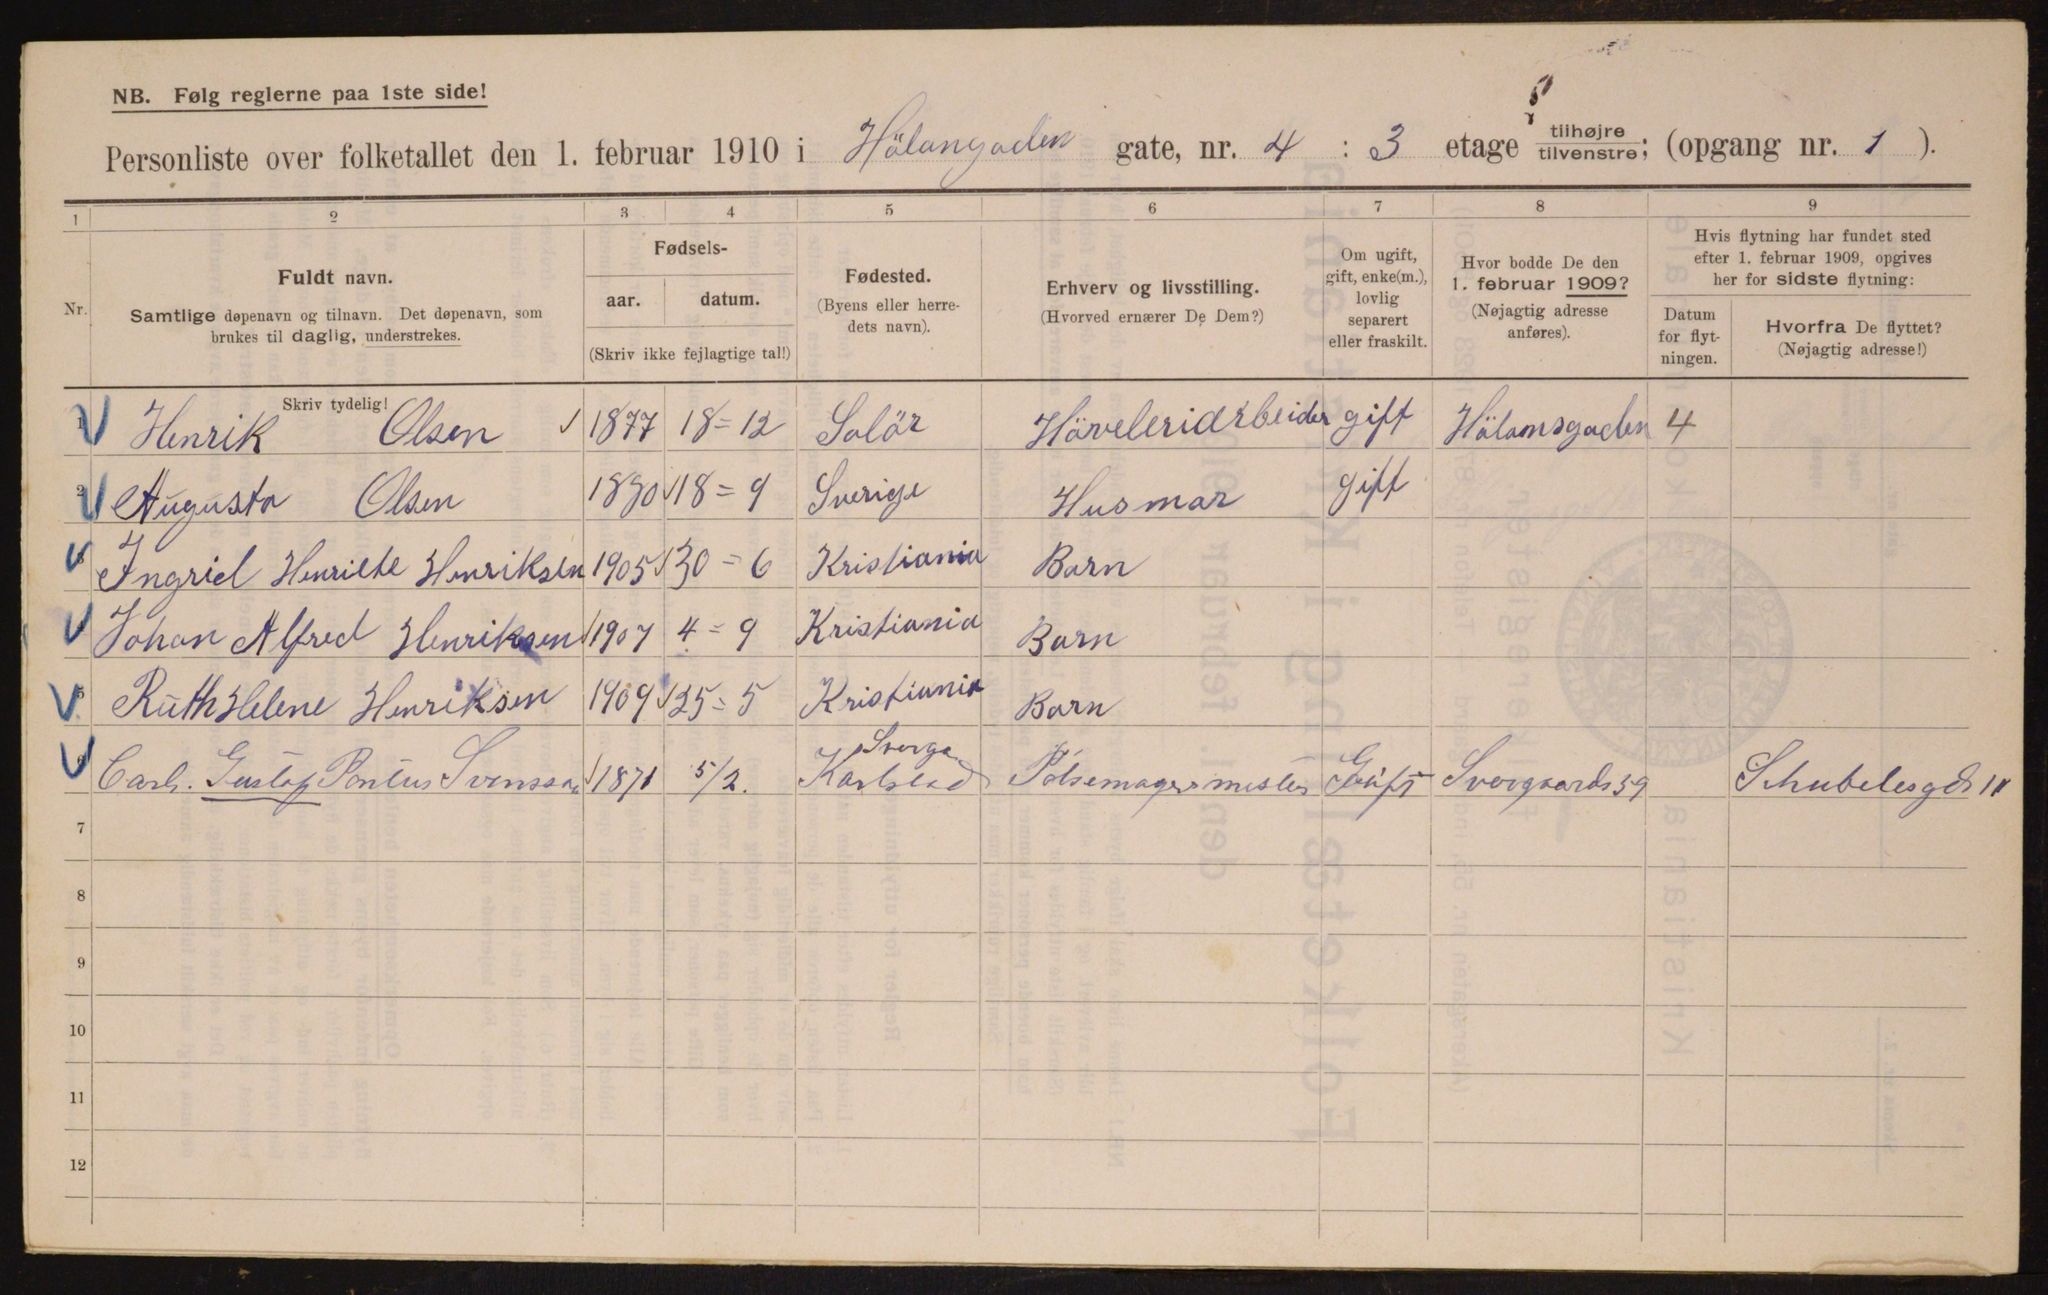 NB. Følg reglerne paa 1ste side!
Personliste over folketallet den 1. februar 1910 i Hölangaden gate, nr. 4 : 3 etage tilhøjre tilvenstre; (opgang nr. 1 ).
1 2 3 4 5 6 7 8 9
Nr.
Fuldt navn.
Samtlige døpenavn og tilnavn. Det døpenavn, som
brukes til daglig, understrekes.
Skriv tydelig!
Fødsels-
aar. datum.
(Skriv ikke fejlagtige tal!)
Fødested.
(Byens eller herre-
dets navn).
Erhverv og livsstilling.
(Hvorved ernærer De Dem?)
Om ugift,
gift, enke(m.),
lovlig
separert
eller fraskilt.
Hvor bodde De den
1. februar 1909?
(Nøjagtig adresse
anføres).
Hvis flytning har fundet sted
efter 1. februar 1909, opgives
her for sidste flytning:
Datum
for flyt-
ningen.
Hvorfra De flyttet?
(Nøjagtig adresse!)
1 Henrik Olsen 1877 18=12 Solör Höveleriarbeider gift Hölamsgaden 4
2 Augusta Olsen 1880 18=9 Sverige Husmor gift
3 Ingrid Henriete Henriksen 1905 30=6 Kristiania Barn
4 Johan Alfred Henriksen 1907 4=9 Kristiania Barn
5 Ruth Helene Henriksen 1909 25=5 Kristiania Barn
6 Carl. Gustaf Pontus Svensson 1871 5/2. Karlstad Sverge Pölsemagermester Gift Svergaards 39 Schubelesgd 11
7
8
9
10
11
12